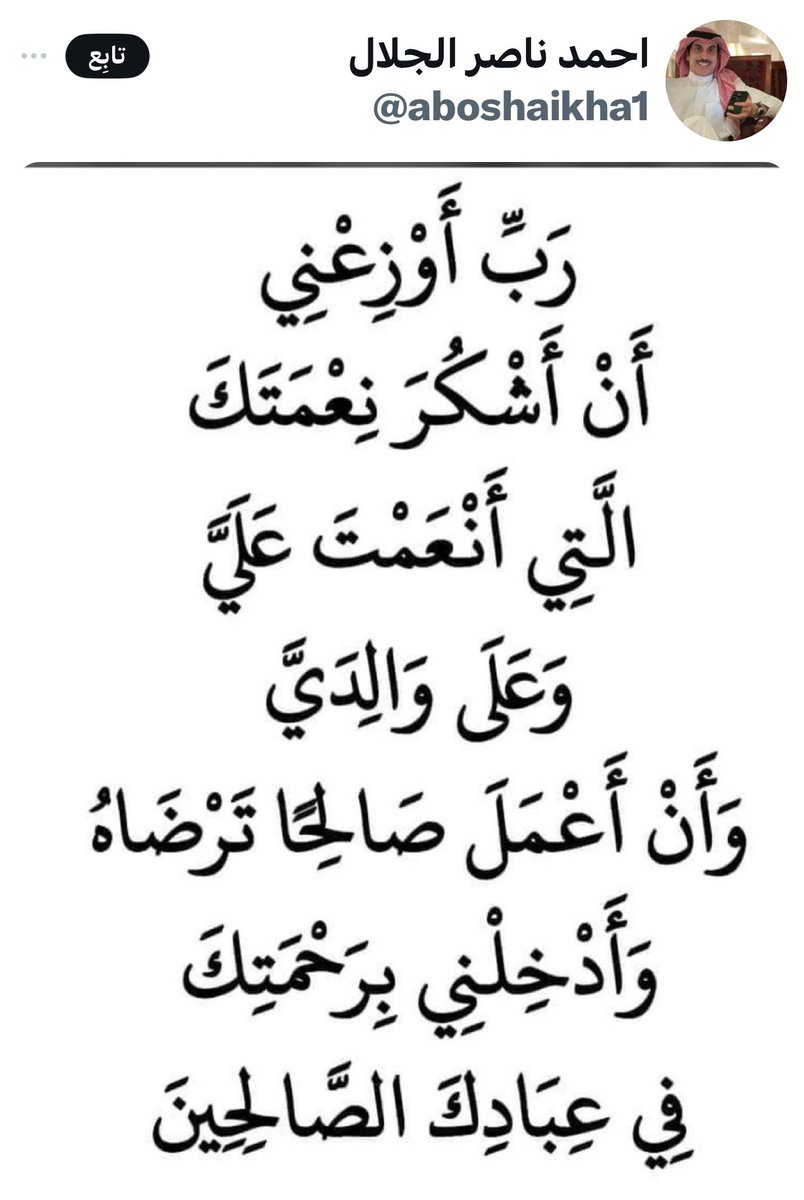 احمد ناصر الجلال
تابِع
@aboshaikha1
رَبِّ أَوْزِعْنِي
أَنْ أَشْكُرَ نِعْمَتَكَ
الَّتِي أَنْعَمْتَ عَلَيَّ
وَعَلَى وَالِدَيَّ
وَأَنْ أَعْمَلَ صَالِحًا تَرْضَاهُ
وَأَدْخِلْنِي بِرَحْمَتِكَ
فِي عِبَادِكَ الصَّالِحِينَ